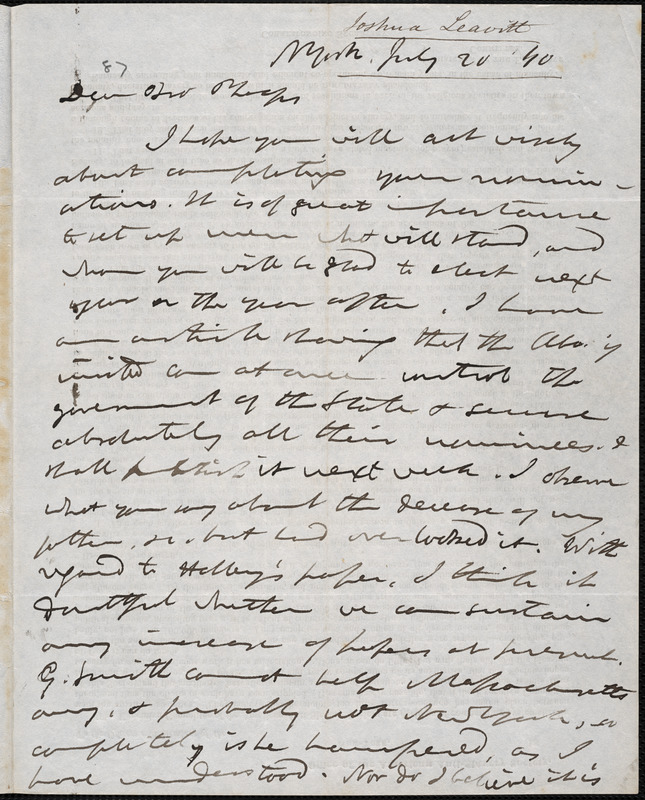 Joshua Leavitt
NYork. July 20 '40
87
Dear Bro Phelps
I hope you will act wisely
about completing your nomin-
ations. It is of great importance
to set up men who will stand, and
whom you will be glad to elect next
year or the year after. I have
an article showing that the Abo. if
united can at once control the
government of the State & secure
absolutely all their nominees. I
shall publish it next week. I observe
what you say about the decease of my
father, &c. but had overlooked it. With
regard to Holley's paper, I think it
doubtful whether we can sustain
any increase of papers at present.
G. Smith cannot help Massachusetts
any, & probably not New York, so
completely is he hampered, as I
have understood. Nor do I believe it is